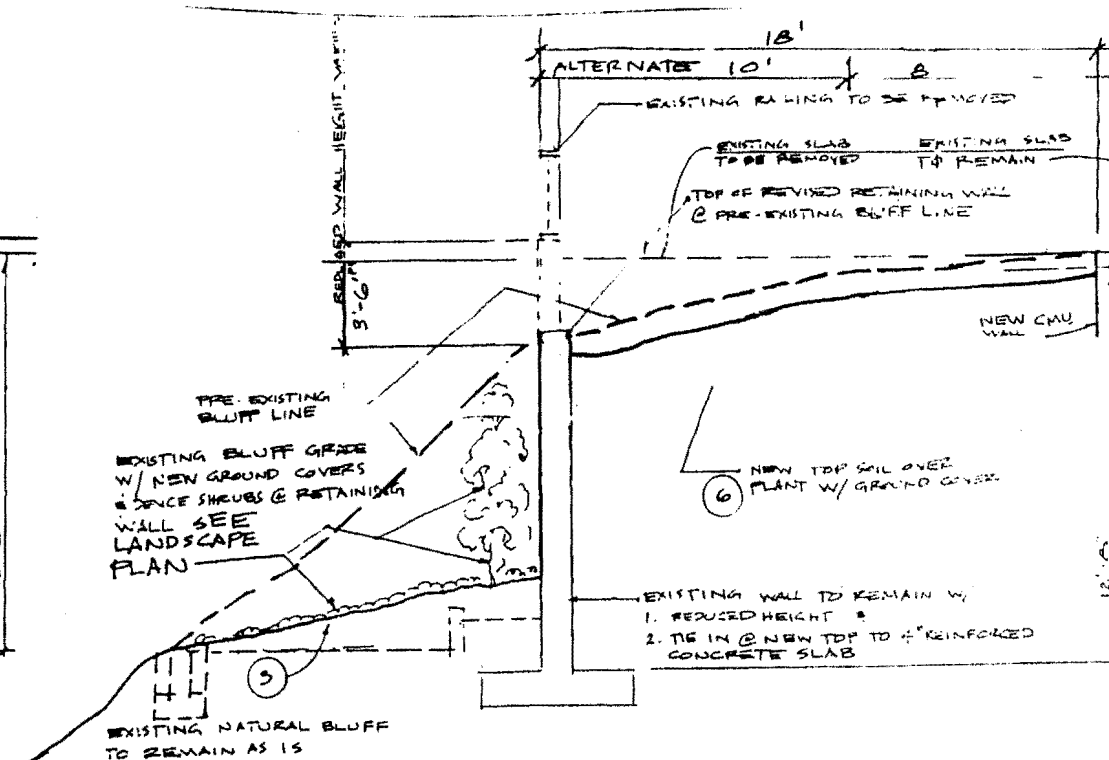 18'
ALTERNATE 10'
8
EXISTING RAILING TO BE REMOVED
EXISTING SLAB
TO BE REMOVED
EXISTING SLAB
TO REMAIN
TOP OF REVISED RETAINING WALL
@ PRE-EXISTING BLUFF LINE
WALL HEIGHT
3'-6"
NEW CMU
WALL
PRE-EXISTING
BLUFF LINE
EXISTING BLUFF GRADE
W/ NEW GROUND COVERS
& DENCE SHRUBS @ RETAINING
WALL SEE
LANDSCAPE
PLAN
NEW TOP SOIL OVER
PLANT W/ GROUND COVER
6
EXISTING WALL TO REMAIN W/
1. REDUCED HEIGHT &
2. TIE IN @ NEW TOP TO 4" REINFORCED
CONCRETE SLAB
EXISTING NATURAL BLUFF
TO REMAIN AS IS